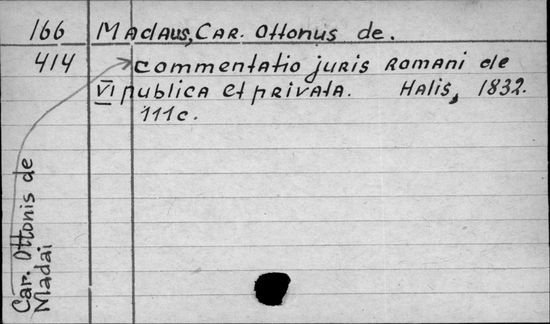 166 Madaus, Car. Ottonus de.
414 commentatio juris romani de
VI publica et privata. Halis, 1832.
111c.
Car. Ottonis de
Madai